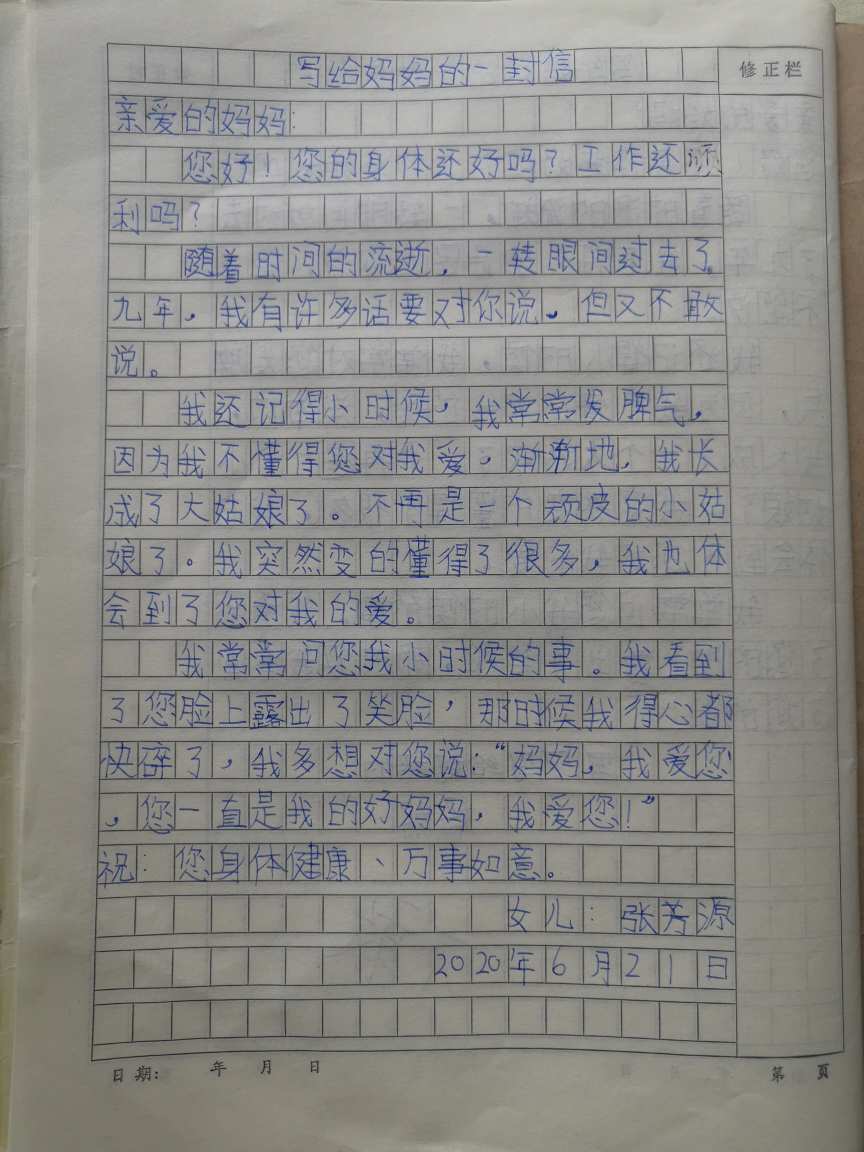 写给妈妈的一封信
修正栏
亲爱的妈妈：
您好！您的身体还好吗？工作还顺
利吗？
随着时间的流逝，一转眼间过去了
九年，我有许多话要对你说。但又不敢
说。
我还记得小时候，我常常发脾气，
因为我不懂得您对我爱，渐渐地，我长
成了大姑娘了。不再是一个顽皮的小姑
娘了。我突然变的懂得了很多，我也体
会到了您对我的爱。
我常常问您我小时候的事。我看到
了您脸上露出了笑脸，那时候我得心都
快碎了，我多想对您说：“妈妈，我爱您
，您一直是我的好妈妈，我爱您！”
祝：您身体健康、万事如意。
女儿：张芳源
2020年6月21日
日期： 年 月 日
第 页